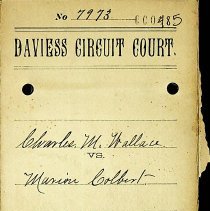 No 7973 000485
DAVIESS CIRCUIT COURT.
Charles. M. Wallace
VS.
Marion Colbert